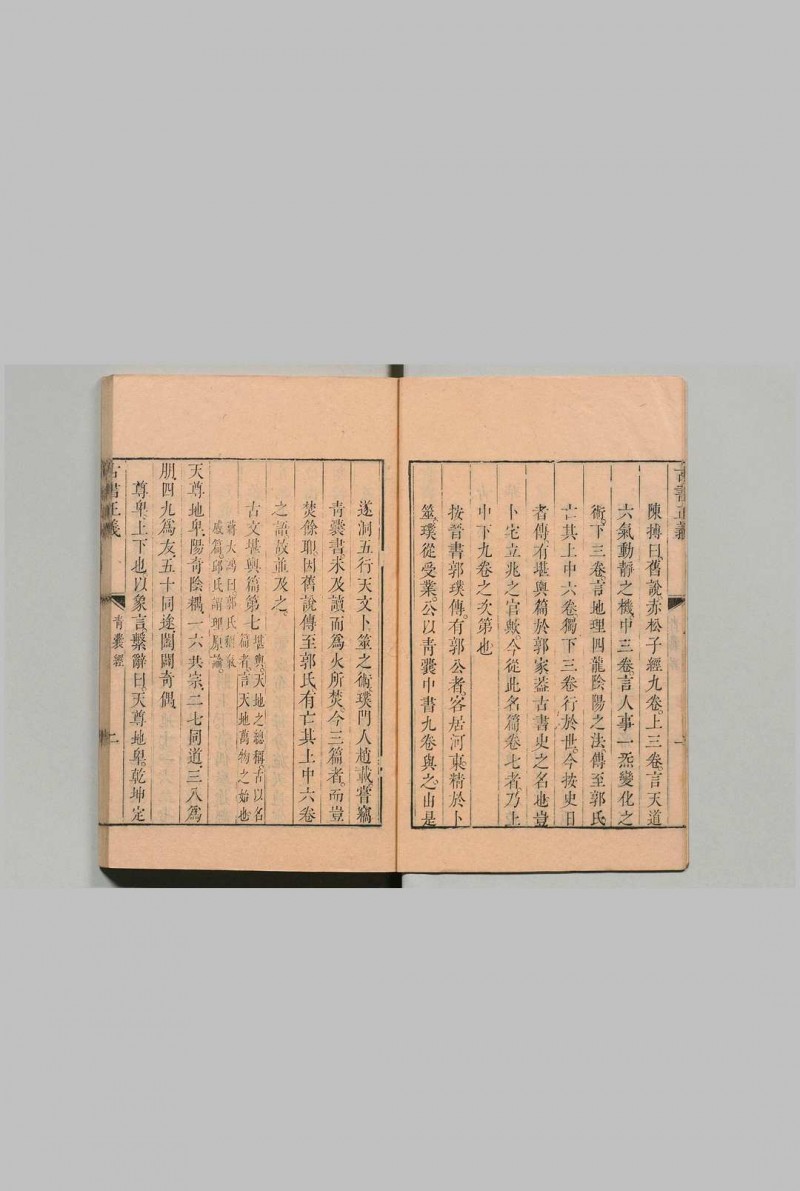 古書正義
一
陳摶曰舊說赤松子經九卷上三卷言天道
六氣動靜之機中三卷言人事一炁變化之
術下三卷言地理四龍陰陽之法傳至郭氏
亡其上中六卷獨下三卷行於世今按史日
者傳有堪輿篇於郭家蓋古書史之名也豈
卜宅立兆之官歟今從此名篇卷七者乃上
中下九卷之次第也
按晉書郭璞傳有郭公者客居河東精於卜
筮璞從受業公以青囊中書九卷與之由是
遂洞五行天文卜筮之術璞門人趙載嘗竊
青囊書未及讀而爲火所焚今三篇者而豈
焚餘耶因舊說傳至郭氏有亡其上中六卷
之語故並及之
古文堪輿篇第七
堪輿天地之總稱古以名
篇者言天地萬物之始也
蔣大鴻曰郭氏
篇邱氏謂理
天尊地卑陽奇陰耦一六共宗二七同道三八爲
朋四九爲友五十同途闔闢奇偶
尊卑上下也以象言繫辭曰天尊地卑乾坤定
古書正義
青囊經
二